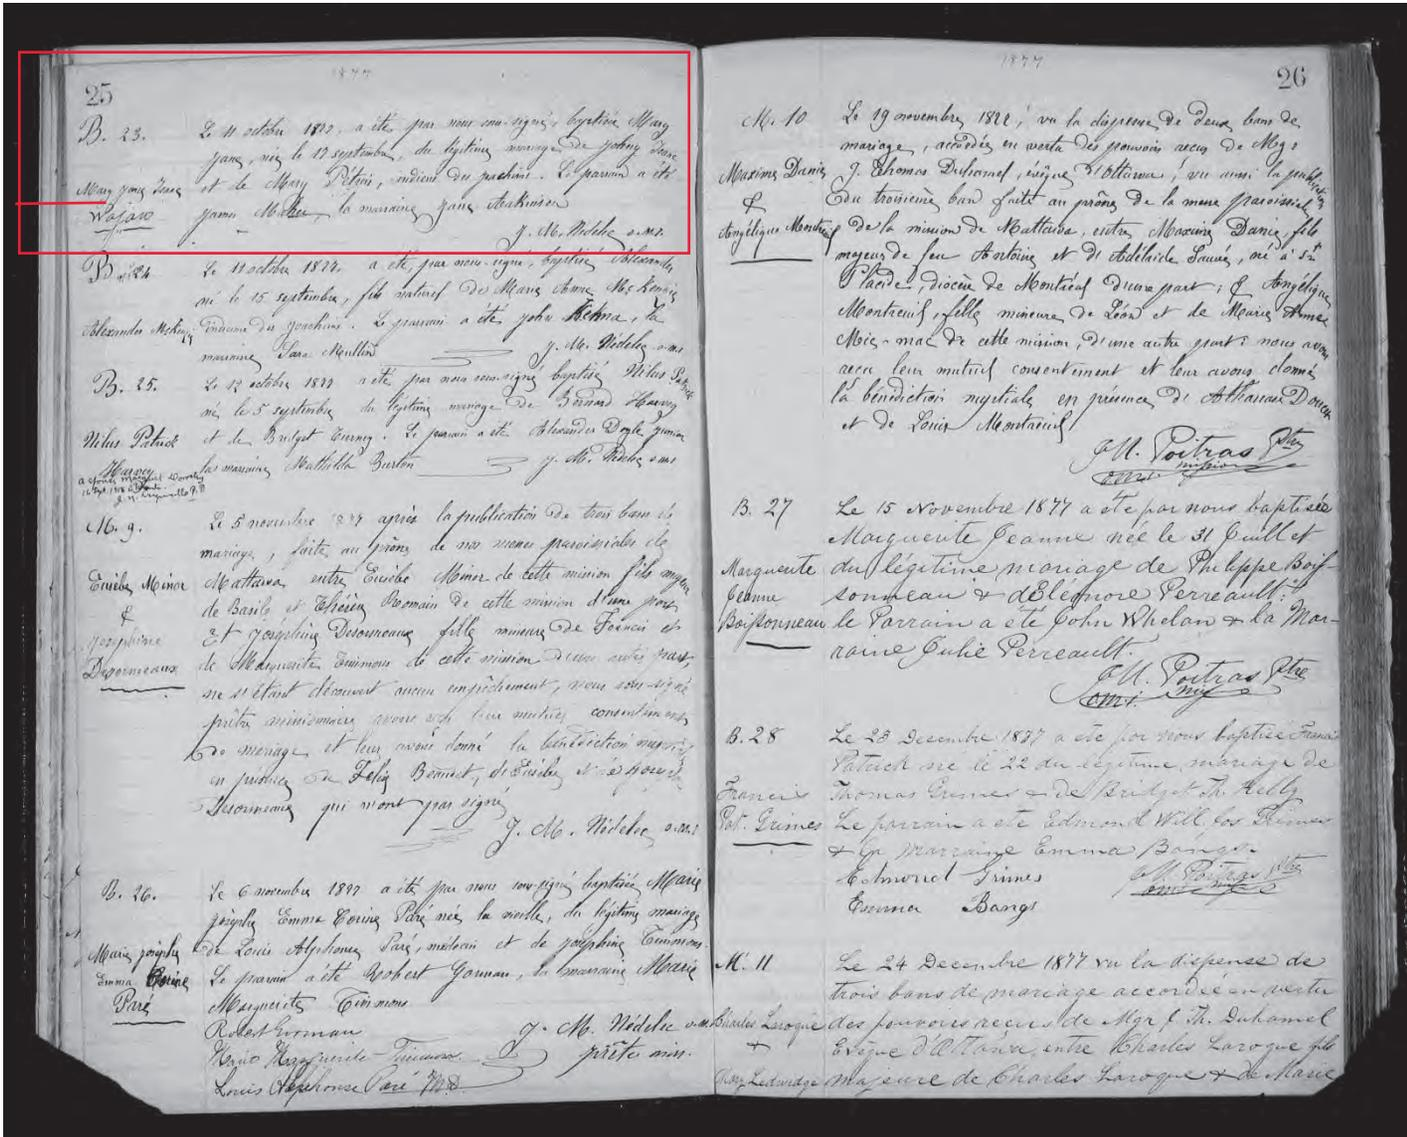 1877
25
B. 23.
Mary Jane
Wajaw
Le 11 octobre 1877, a été, par nous sous-signé, baptisée Mary
Jane, née le 17 septembre, du légitime mariage de Johny
et de Mary, indiens des Joachims. Le parrain a été
James, la marraine Jane Atakinson
J. M. Nédelec o.m.i.
B. 24
Alexander McKenzie
Le 11 octobre 1877, a été, par nous sous-signé, baptisé Alexander
né le 15 septembre, fils naturel de Marie Anne McKenzie
indienne des Joachims. Le parrain a été John, la
marraine Sara Mullin
J. M. Nédelec o.m.i.
B. 25.
Nilus Patrick
Harvey
Le 12 octobre 1877 a été, par nous sous-signé baptisé Nilus Patrick
né le 5 septembre du légitime mariage de Bernard Harvey
et de Bridget Turney. Le parrain a été Alexander Doyle junior
la marraine Mathilda Burton
J. M. Nédelec o.m.i.
M. 9.
Eusèbe Minor
&
Josephine
Desormeaux
Le 5 novembre 1877 après la publication de trois bans de
mariage, faite au prône de nos messes paroissiales de
Mattawa entre Eusèbe Minor de cette mission fils majeur
de Basile et Thérèse Romain de cette mission d'une part
Et Joséphine Desormeaux fille mineure de Francis et
de Marguerite Timmons de cette mission d'une autre part,
ne s'étant découvert aucun empêchement, nous sous-signé
prêtre missionnaire avons reçu leur mutuel consentement
de mariage et leur avons donné la bénédiction nuptiale
en présence de Félix, d'Eusèbe et de
Desormeaux qui n'ont pas signé
J. M. Nédelec o.m.i.
B. 26.
Marie Josephe
Emma Corine
Paré
Le 6 novembre 1877 a été par nous sous-signé baptisée Marie
Josephe Emma Corine Paré née la veille, du légitime mariage
de Louis Alphonse Paré, médecin et de Josephine Timmons.
Le parrain a été Robert Gorman, la marraine Marie
Marguerite Timmons
Robert Gorman
J. M. Nédelec o.m.i.
Marguerite Timmons
prêtre miss.
Louis Alphonse Paré M.D.
1877
26
M. 10
Maxime Danis
&
Angélique Montreuil
Le 19 novembre 1877, vu la dispense de deux bans de
mariage, accordée en vertu des pouvoirs reçus de Mgr
J. Thomas Duhamel, évêque d'Ottawa, vu aussi la publication
du troisième ban faite au prône de la messe paroissiale
de la mission de Mattawa, entre Maxime Danis, fils
majeur de feu Antoine et d'Adélaïde Sauvé, né à Ste
Placide, diocèse de Montréal d'une part; & Angélique
Montreuil, fille mineure de Léon et de Marie Anne
Mic-mac de cette mission, d'une autre part: nous avons
reçu leur mutuel consentement et leur avons donné
la bénédiction nuptiale en présence d'Athanase
et de Louis Montreuil
J. M. Poitras Ptre
omi mission
B. 27
Marguerite
Jeanne
Boissonneau
Le 15 Novembre 1877 a été par nous baptisée
Marguerite Jeanne née le 31 Juillet
du légitime mariage de Philippe Bois-
sonneau & d'Eléonore Perreault:
le Parrain a été John Whelan & la Mar-
raine Julie Perreault.
J. M. Poitras Ptre
omi mis
B. 28
Francis
Pat. Grimes
Le 23 Decembre 1877 a été par nous baptisé Francis
Patrick né le 22 du légitime mariage de
Thomas Grimes & de Bridget Th. Kelly
Le parrain a été Edmond Will. Jos Grimes
& la Marraine Emma Bangs.
Edmond Grimes
J. M. Poitras Ptre
omi mis
Emma Bangs
M. 11
Charles Laroque
&
Le 24 Decembre 1877 vu la dispense de
trois bans de mariage accordée en vertu
des pouvoirs reçus de Mgr J. Th. Duhamel
Evêque d'Ottawa, entre Charles Laroque fils
majeure de Charles Laroque & de Marie